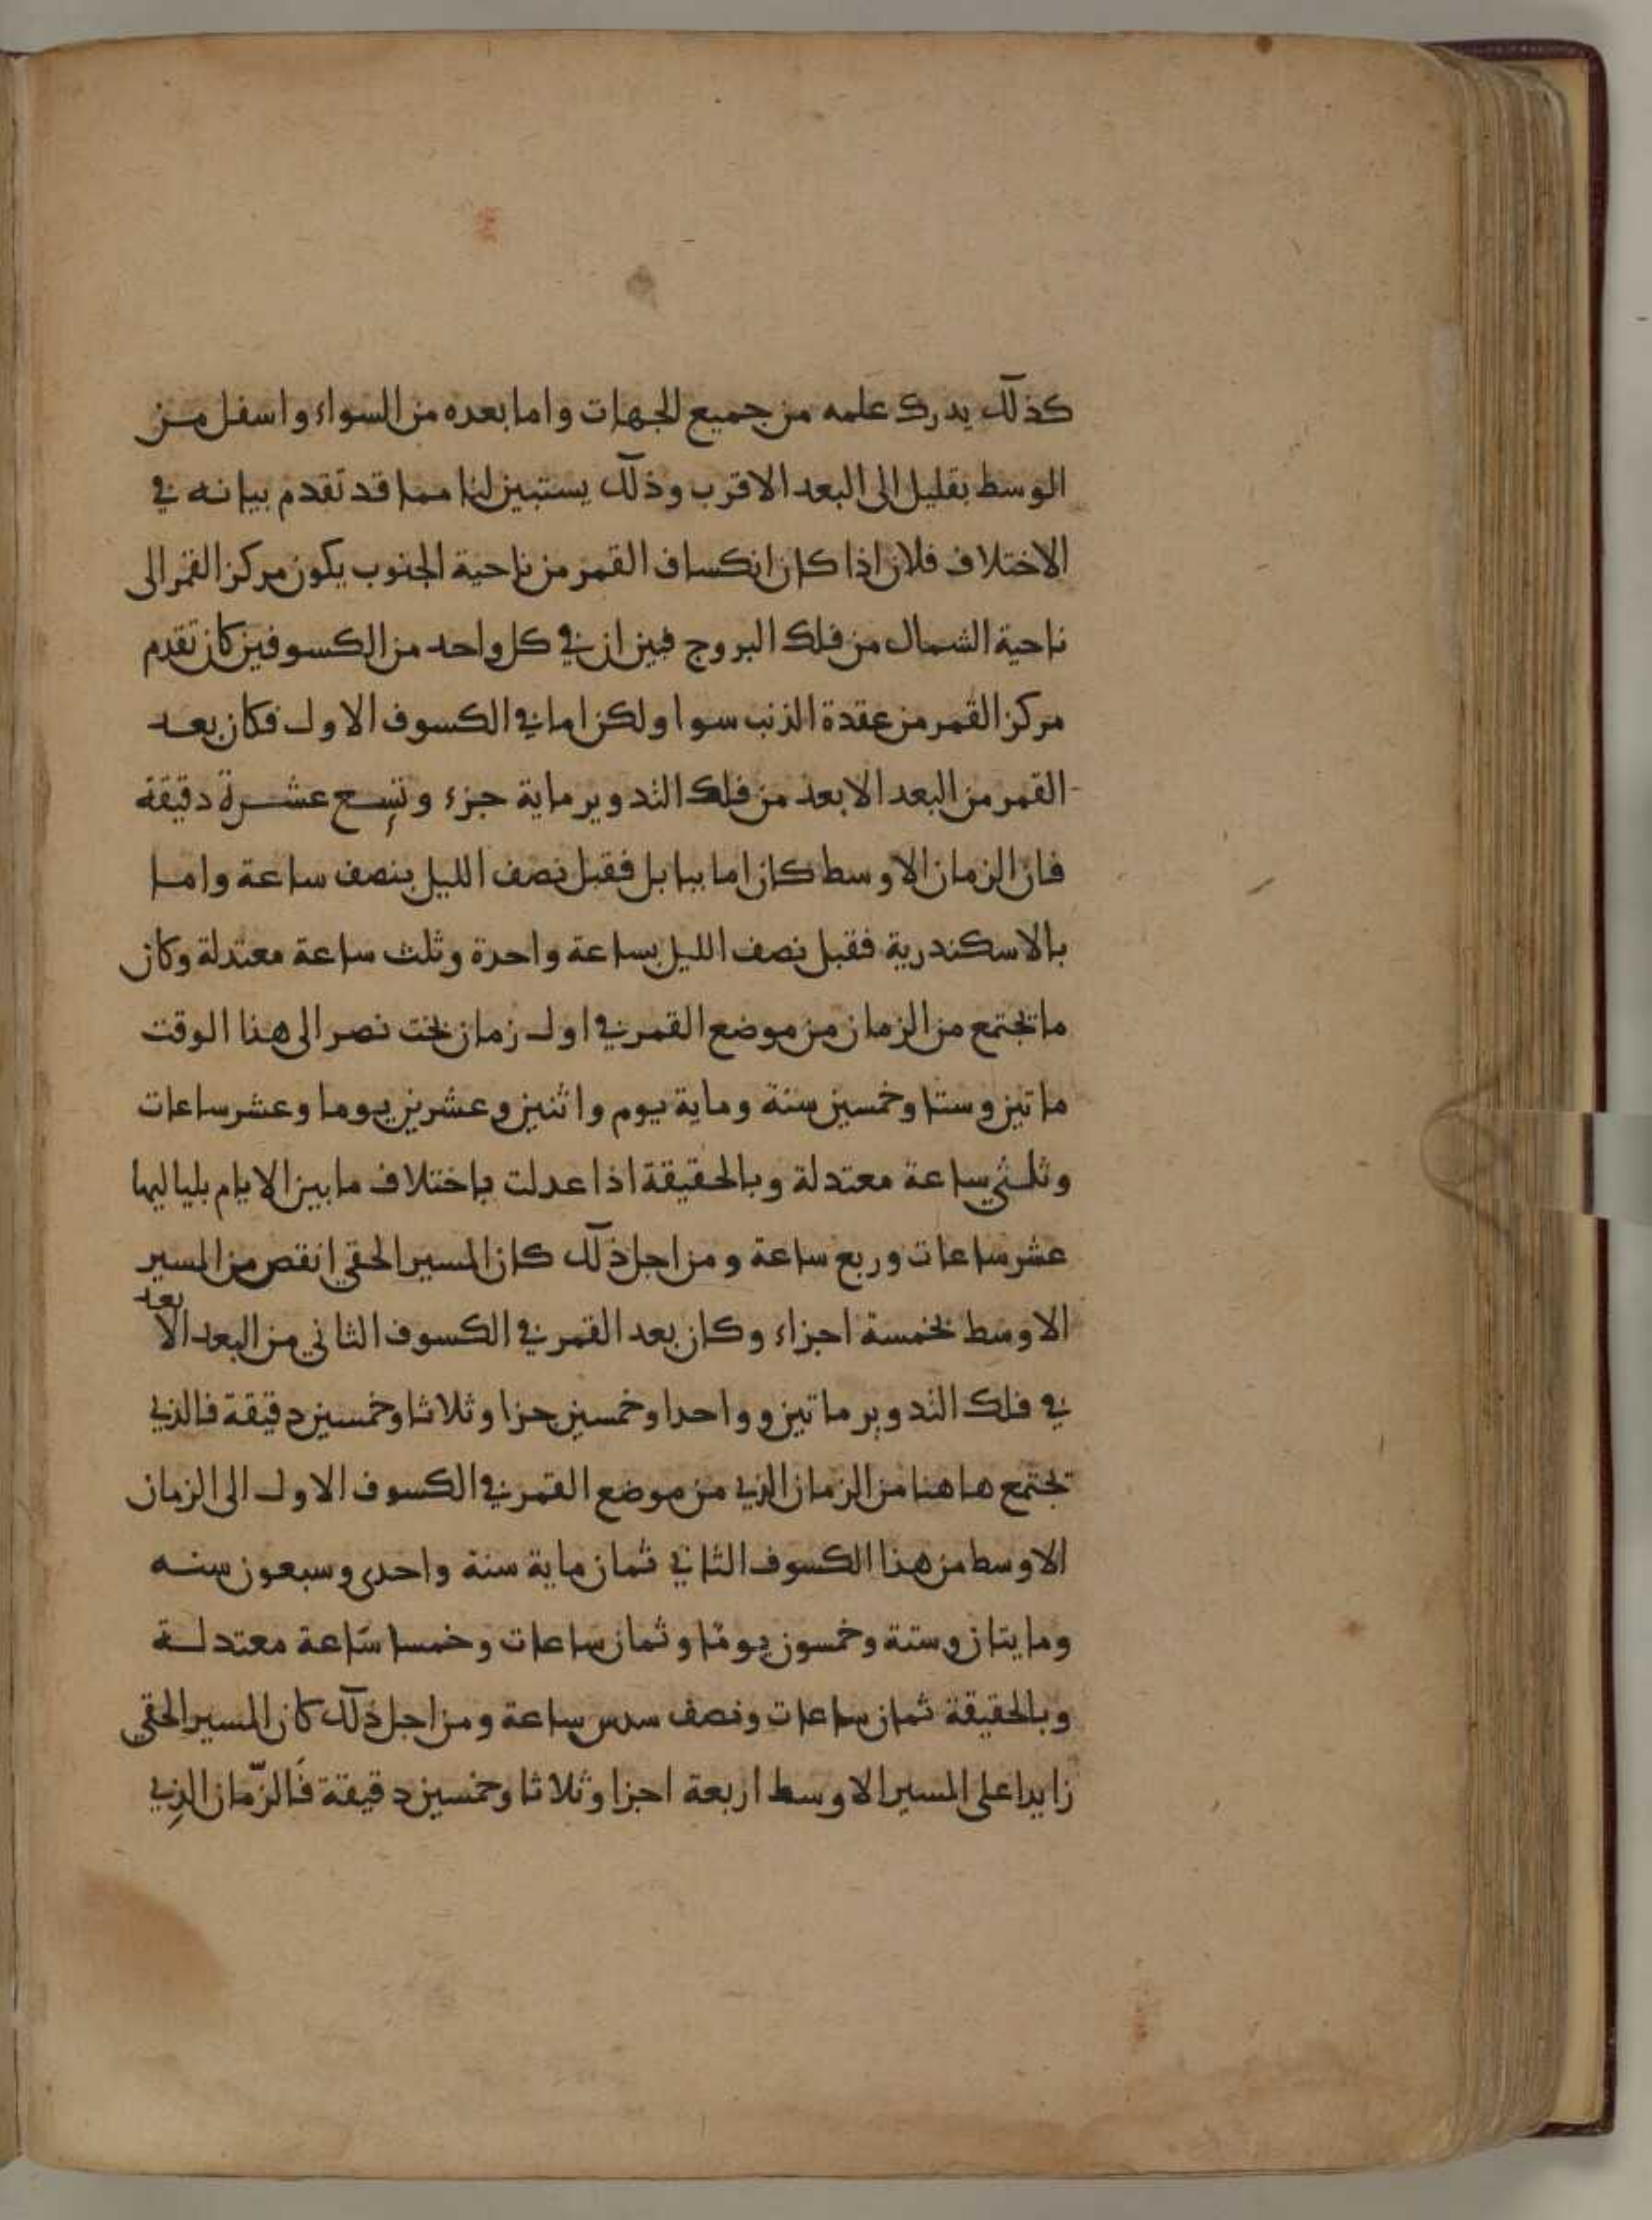 كذلك يدرك علمه من جميع الجهات واما بعده من السواء واسفل من
الوسط بقليل الى البعد الاقرب وذلك يستبين لنا مما قد تقدم بيانه في
الاختلاف فلان اذا كان انكساف القمر من ناحية الجنوب يكون مركز القمر الى
ناحية الشمال من فلك البروج فبين ان في كل واحد من الكسوفين كان تقدم
مركز القمر من عقدة الذنب سوا ولكن اما في الكسوف الاول فكان بعد
القمر من البعد الابعد من فلك التدوير ماية جزء وتسع عشرة دقيقة
فان الزمان الاوسط كان اما ببابل فقبل نصف الليل بنصف ساعة واما
بالاسكندرية فقبل نصف الليل بساعة واحدة وثلث ساعة معتدلة وكان
ما تجتمع من الزمان من موضع القمر في اول زمان بخت نصر الى هذا الوقت
ماتين وستا وخمسين سنة وماية يوم واثنين وعشرين يوما وعشر ساعات
وثلثي ساعة معتدلة وبالحقيقة اذا عدلت باختلاف ما بين الايام بلياليها
عشر ساعات وربع ساعة ومن اجل ذلك كان المسير الحقي انقص من المسير
الاوسط بخمسة اجزاء وكان بعد القمر في الكسوف الثاني من البعد الابعد
في فلك التدوير ماتين وواحدا وخمسين جزا وثلاثا وخمسين دقيقة فالذي
تجتمع هاهنا من الزمان الذي من موضع القمر في الكسوف الاول الى الزمان
الاوسط من هذا الكسوف الثاني ثمان ماية سنة واحدى وسبعون سنه
ومايتان وستة وخمسون يوما وثمان ساعات وخمسا ساعة معتدلة
وبالحقيقة ثمان ساعات ونصف سدس ساعة ومن اجل ذلك كان المسير الحقي
زايدا على المسير الاوسط اربعة اجزا وثلاثا وخمسين دقيقة فالزمان الذي